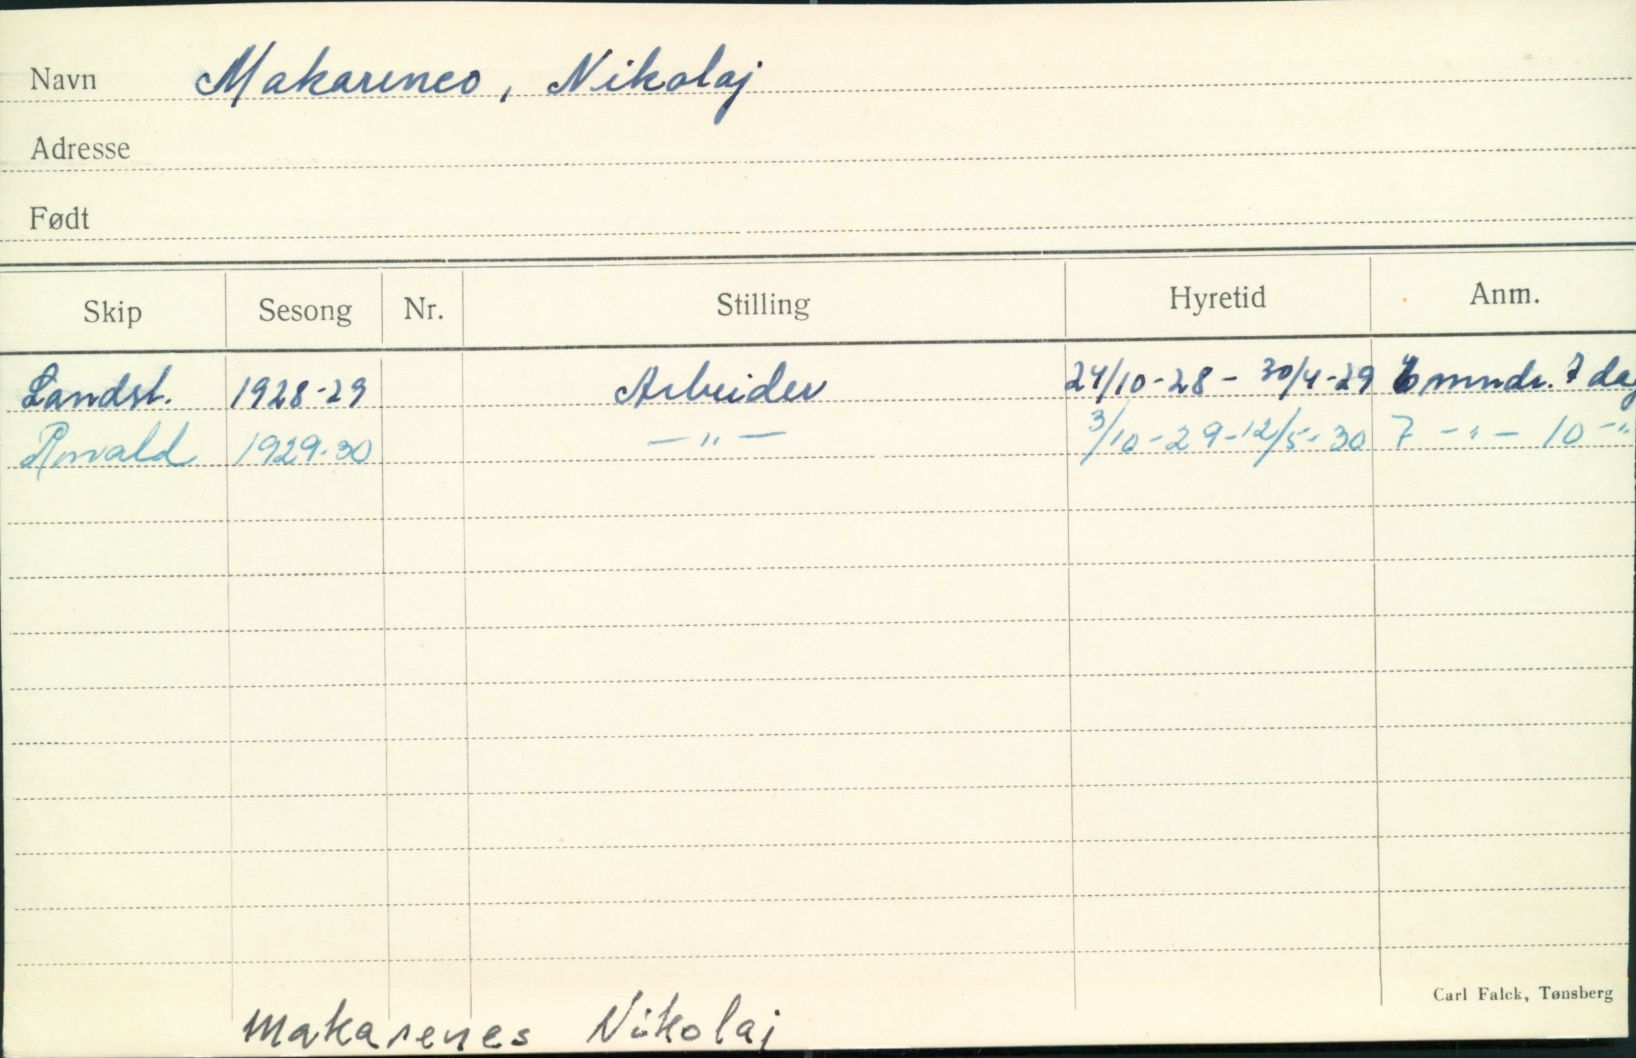 Navn Makarenco, Nikolaj
Adresse
Født
Skip Sesong Nr. Stilling Hyretid Anm.
Landst. 1928-29 Arbeider 24/10-28 - 30/4-29 6 mndr. 7 dag
Ronald 1929-30 — " — 3/10-29-12/5-30 7 - " - 10 - "
Carl Falck, Tønsberg
Makarenes Nikolaj